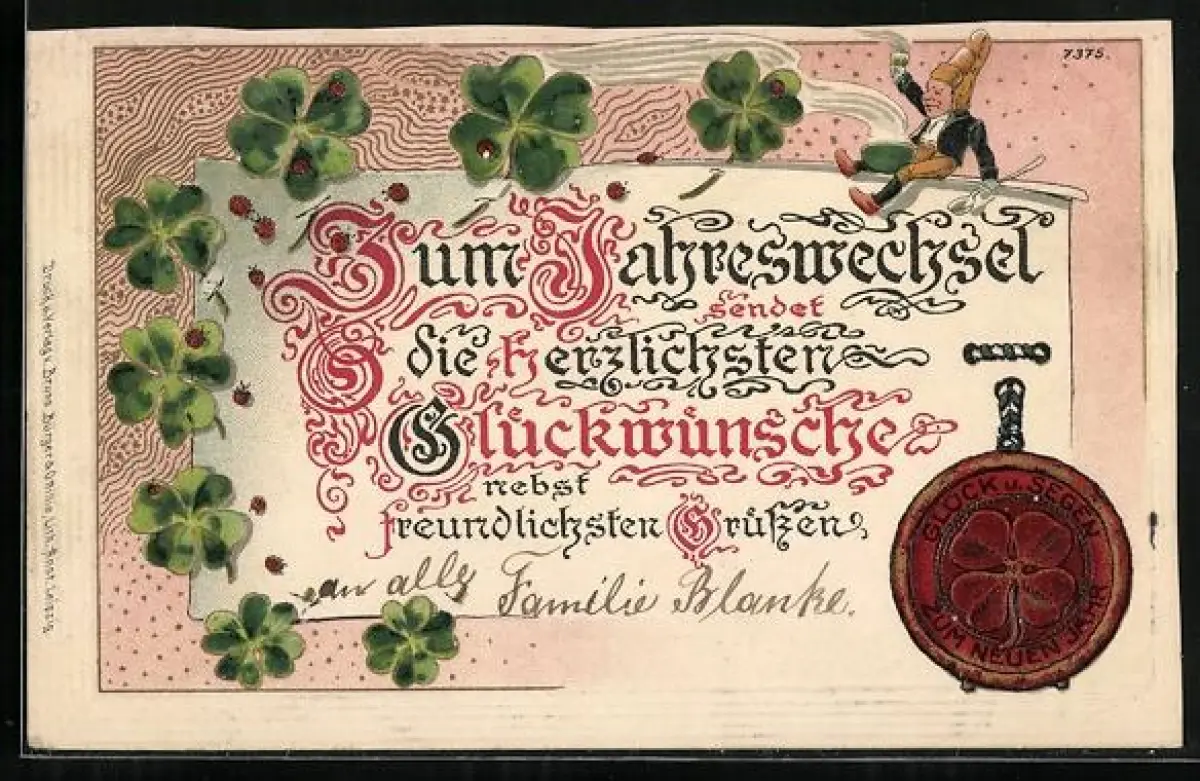 7375.
Zum Jahreswechsel
sendet
die herzlichsten
Glückwünsche
nebst
freundlichsten Grüßen
an alle Familie Blanke.
GLÜCK u. SEGEN
ZUM NEUEN JAHR
Druck u. Verlag v. Bruno Bürger & Ottillie, Lith. Anst. Leipzig